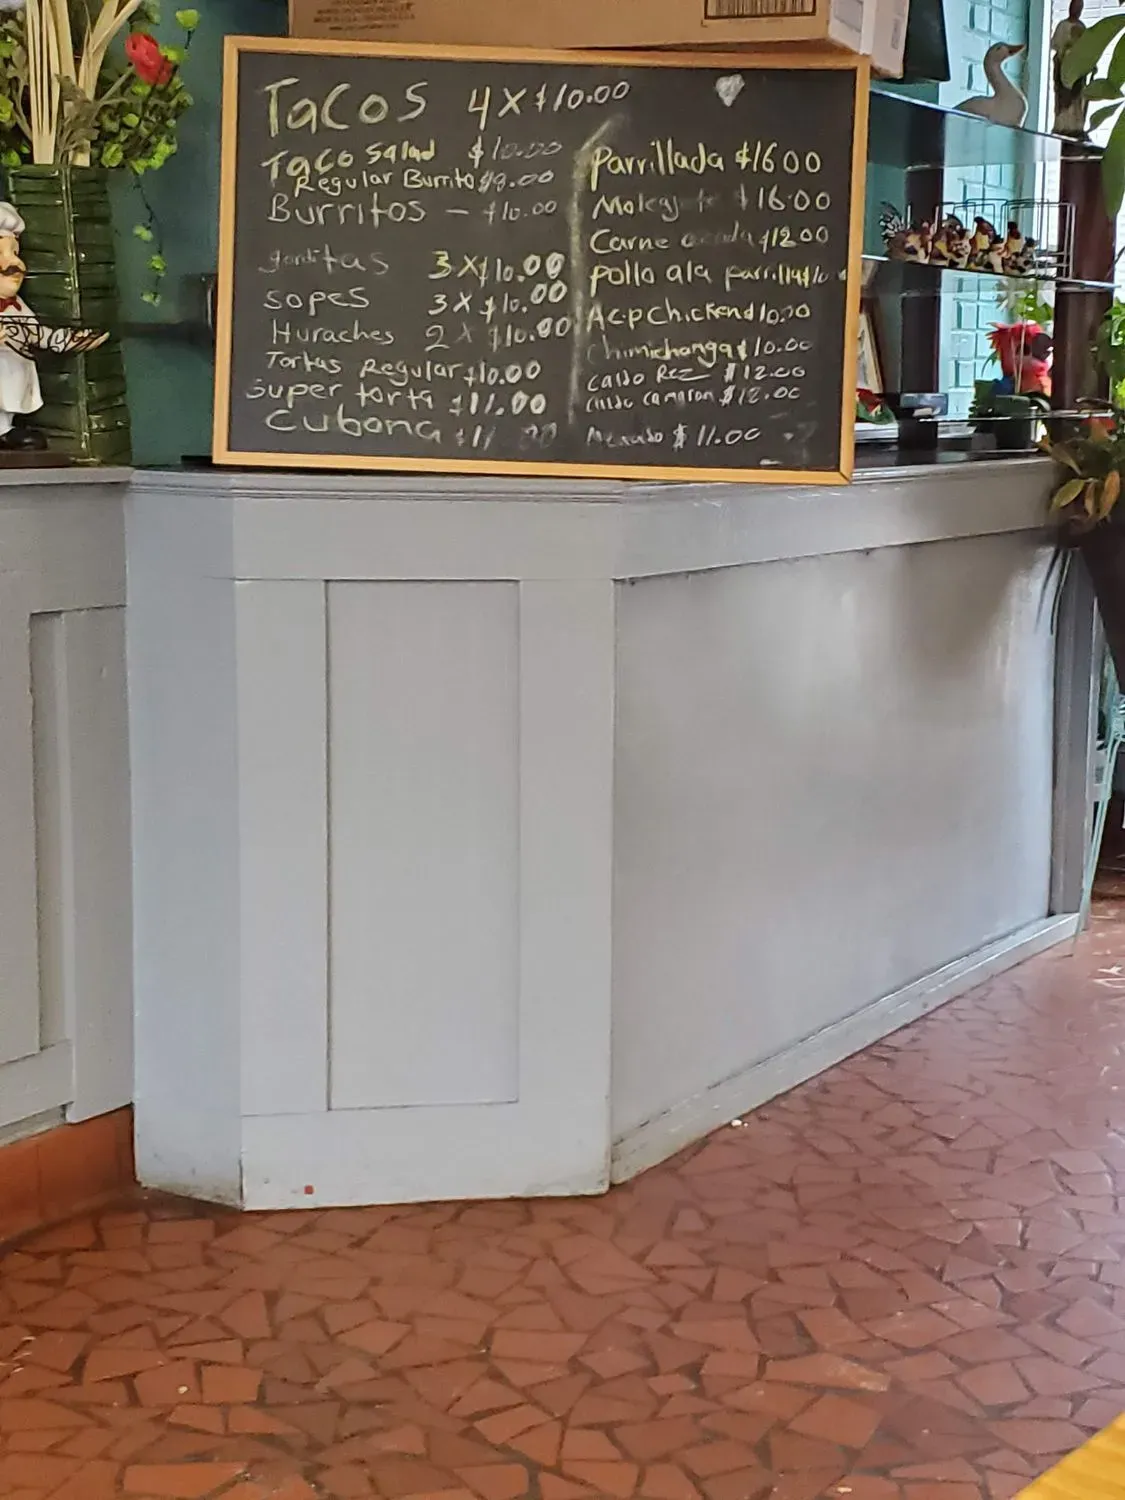 Tacos 4 X $10.00
Taco Salad $10.00
Regular Burrito $9.00
Burritos — $10.00
gorditas 3 X $10.00
sopes 3 X $10.00
Huraches 2 X $10.00
Tortas Regular $10.00
Super torta $11.00
Cubana $11.00
Parrillada $16 00
$16.00
Carne asada $12 00
pollo ala parrilla $10
ACP Chicken $10.00
Chimichanga $10.00
Caldo Rez $12.00
Caldo Camaron $12.00
Menudo $11.00